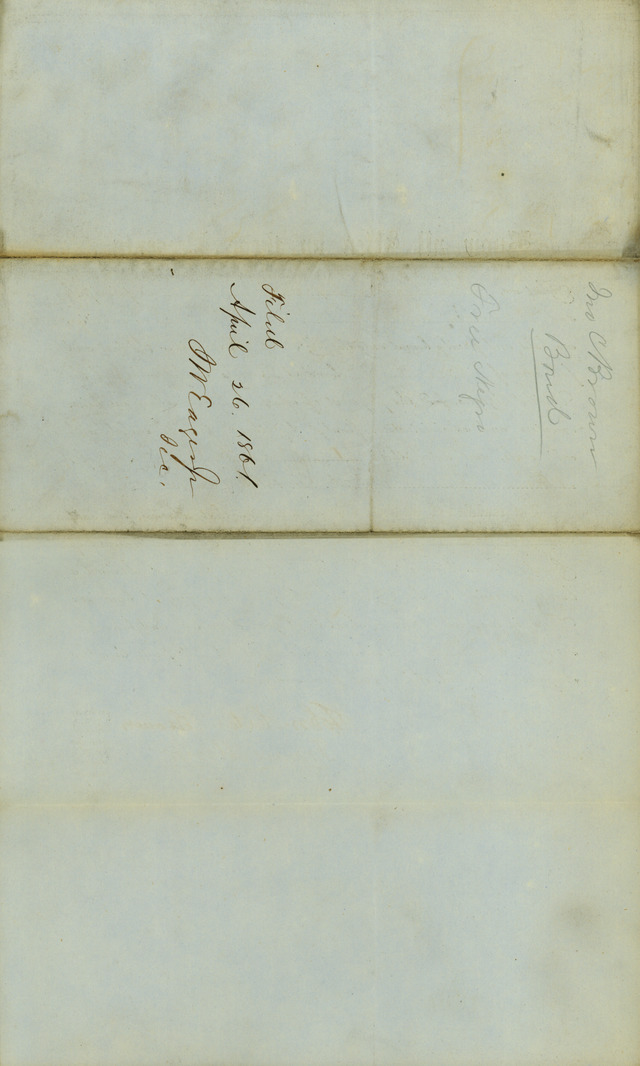 Jno C Brown
Bond
Free Negro
Filed
April 26. 1861.